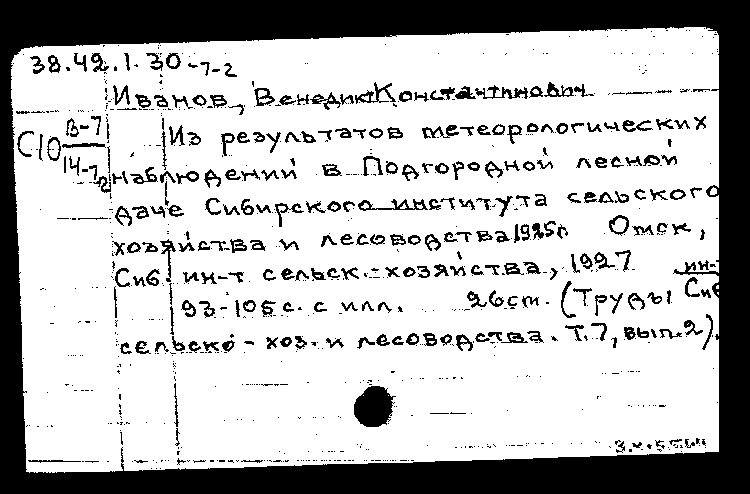 38.42.1.30-7-2
Иванов, Венедикт Константинович
С10 В-7/14-7,2
Из результатов метеорологических
наблюдений в Подгородной лесной
даче Сибирского института сельского
хозяйства и лесоводства 1925г. Омск,
Сиб. ин-т сельск.-хозяйства, 1927
93-105 с. с илл. 26 ст. (Труды Сиб ин-
сельско-хоз. и лесоводства. Т.7, вып.2).